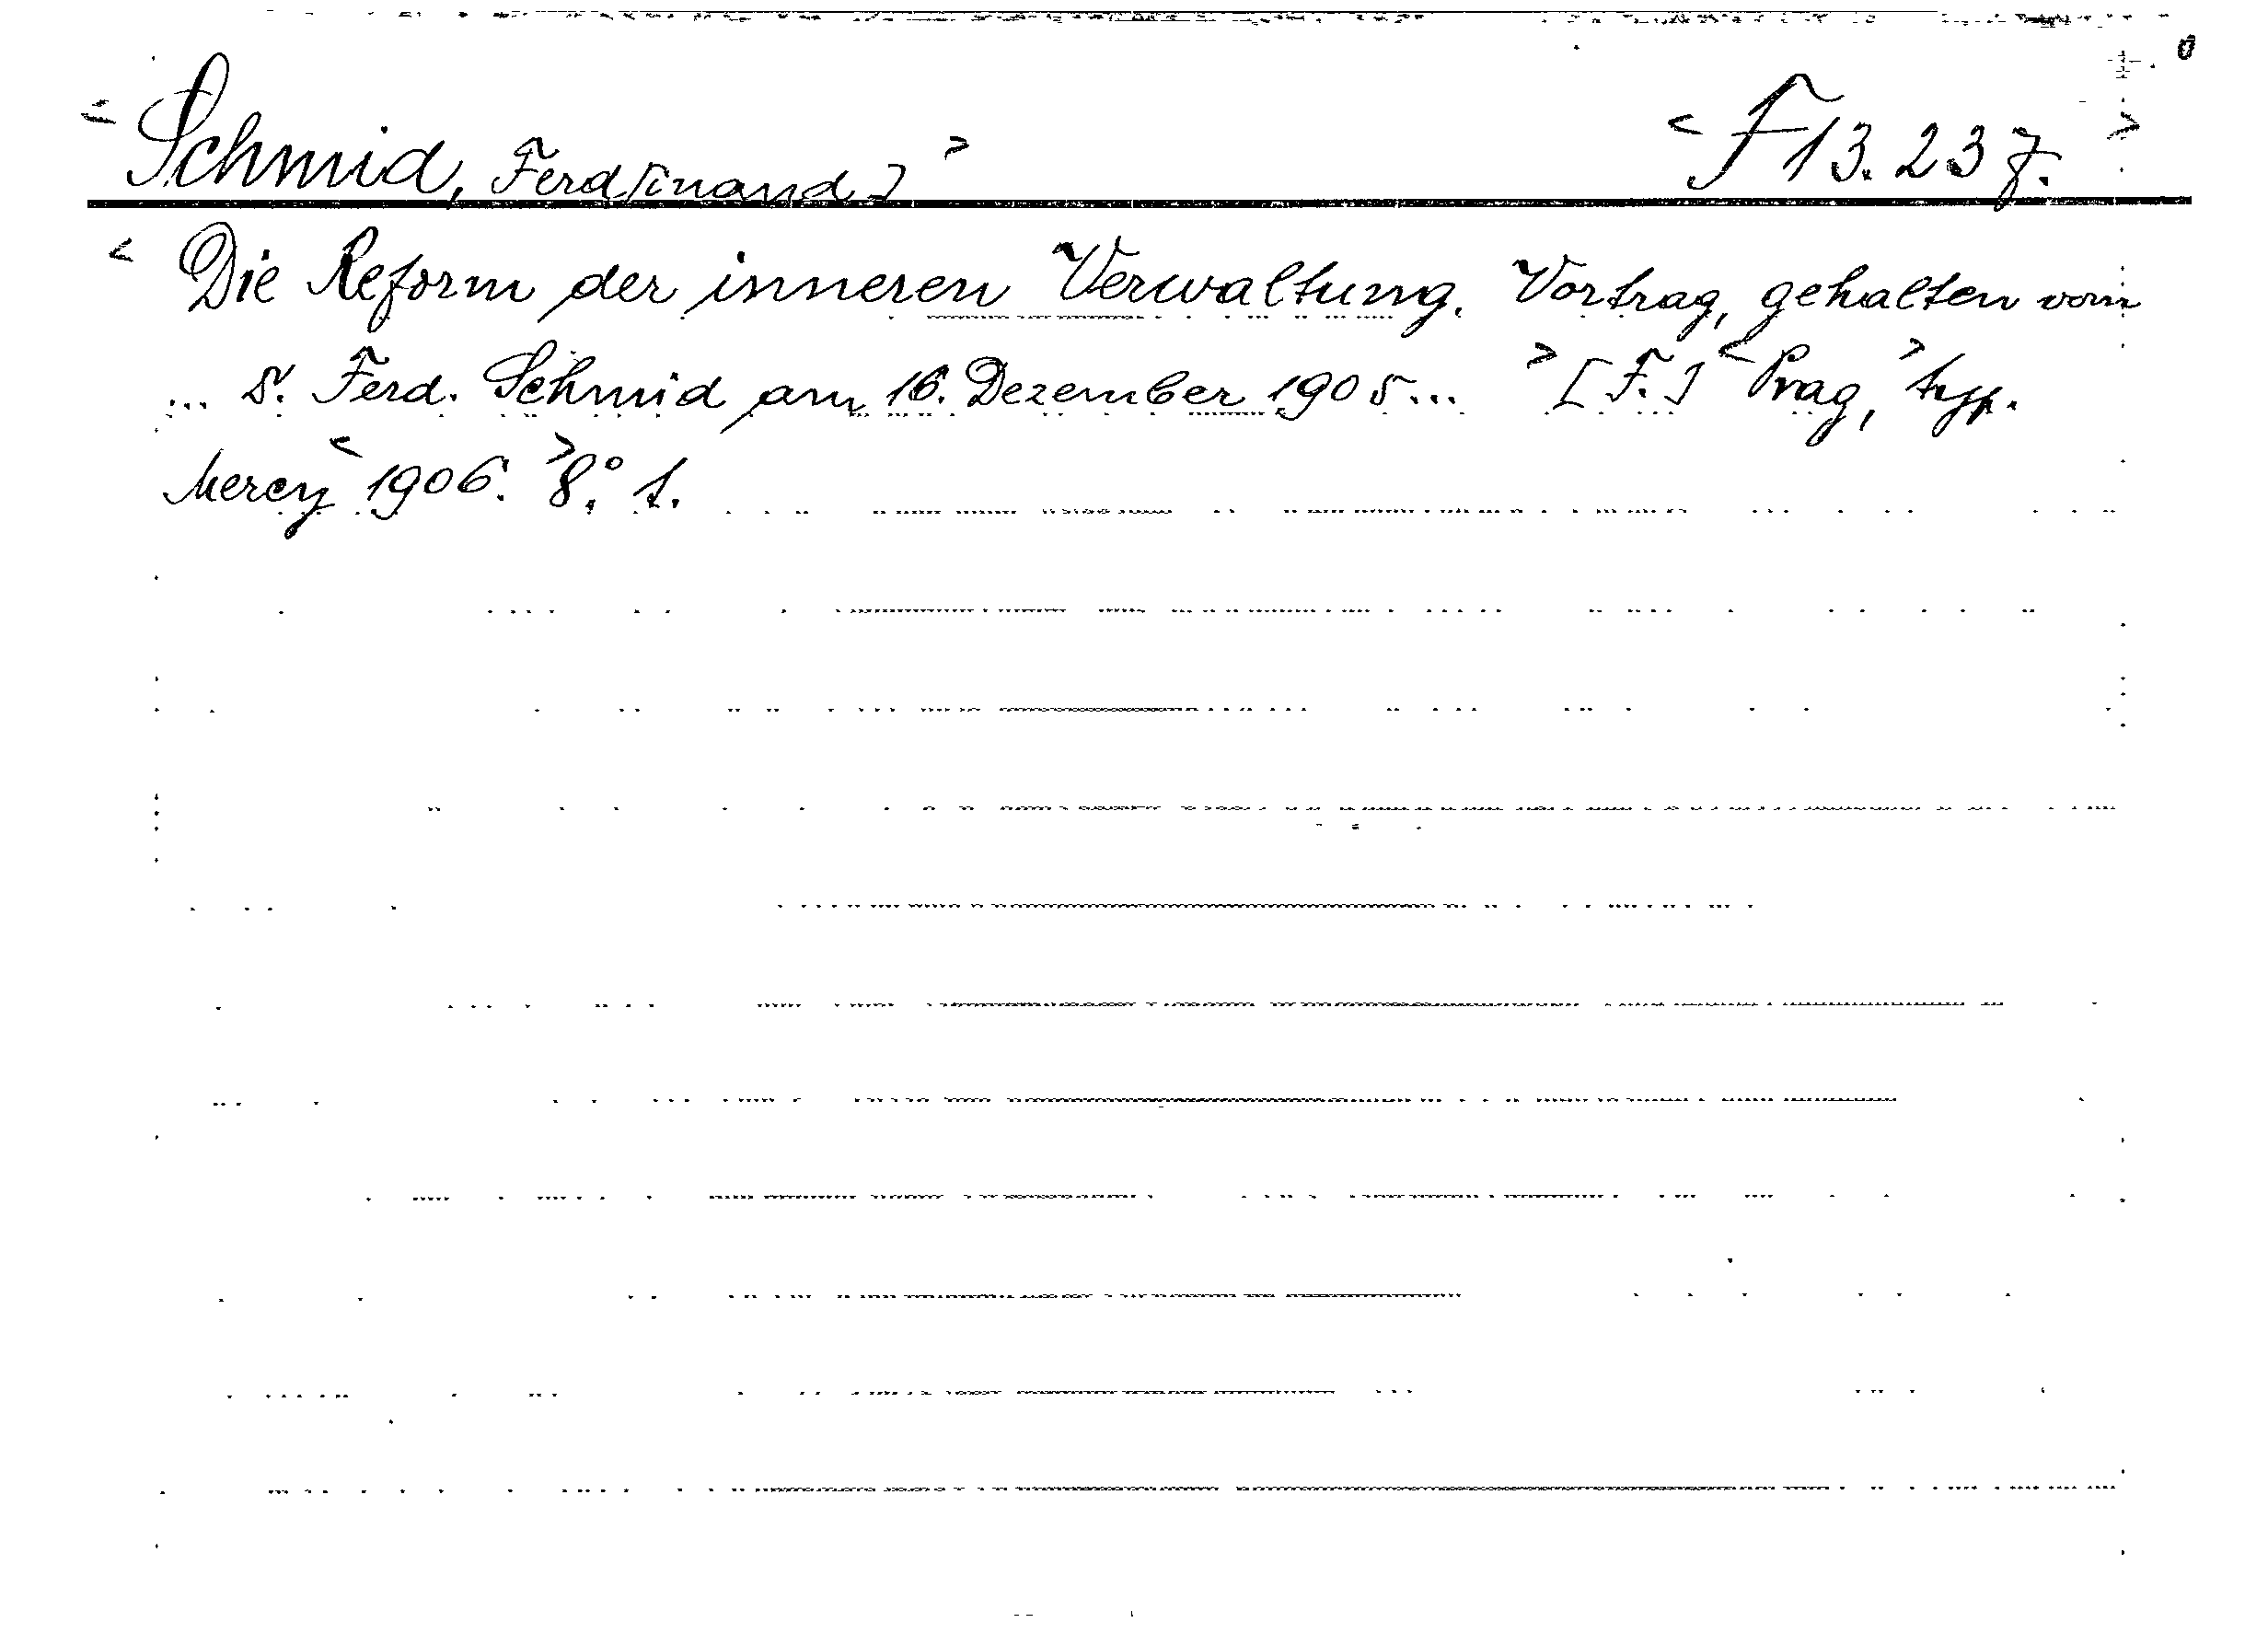 < Schmid, Ferd[inand] > < F 13.237. >
< Die Reform der inneren Verwaltung. Vortrag, gehalten vom
... Ferd. Schmid am 16. Dezember 1905... > [F.] < Prag, > typ.
Mercy < 1906. > 8.° 1.